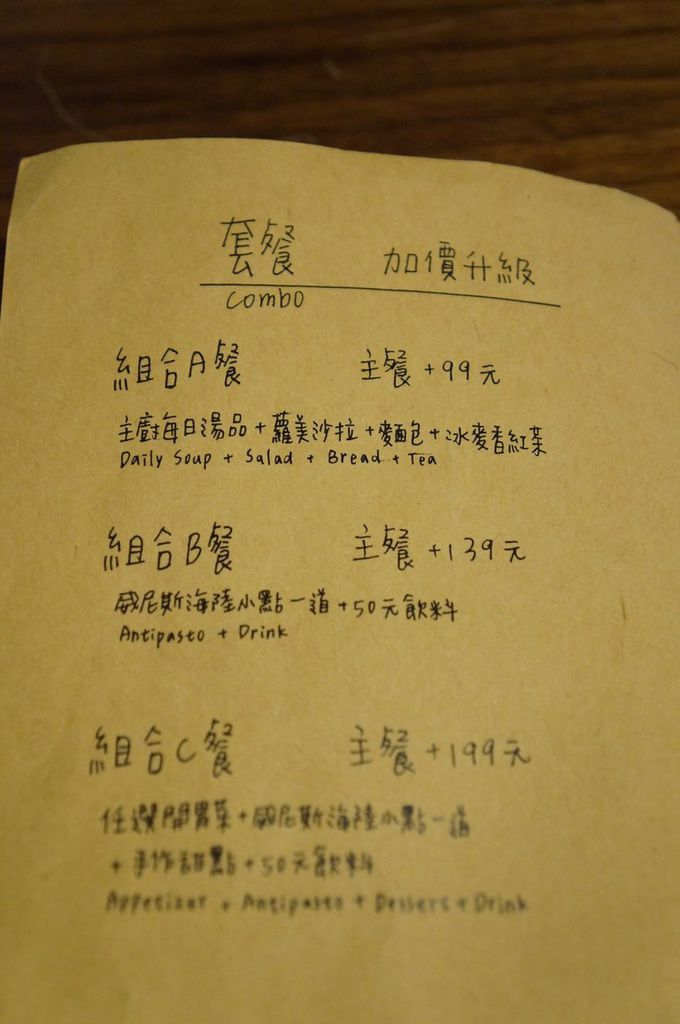 套餐 加價升級
combo
組合A餐 主餐+99元
主廚每日湯品+蘿美沙拉+麵包+冰麥香紅茶
Daily Soup + Salad + Bread + Tea
組合B餐 主餐+139元
威尼斯海陸小點一道+50元飲料
Antipasto + Drink
組合C餐 主餐+199元
任選開胃菜+威尼斯海陸小點一道
+手作甜點+50元飲料
Appetizer + Antipasto + Dessert + Drink